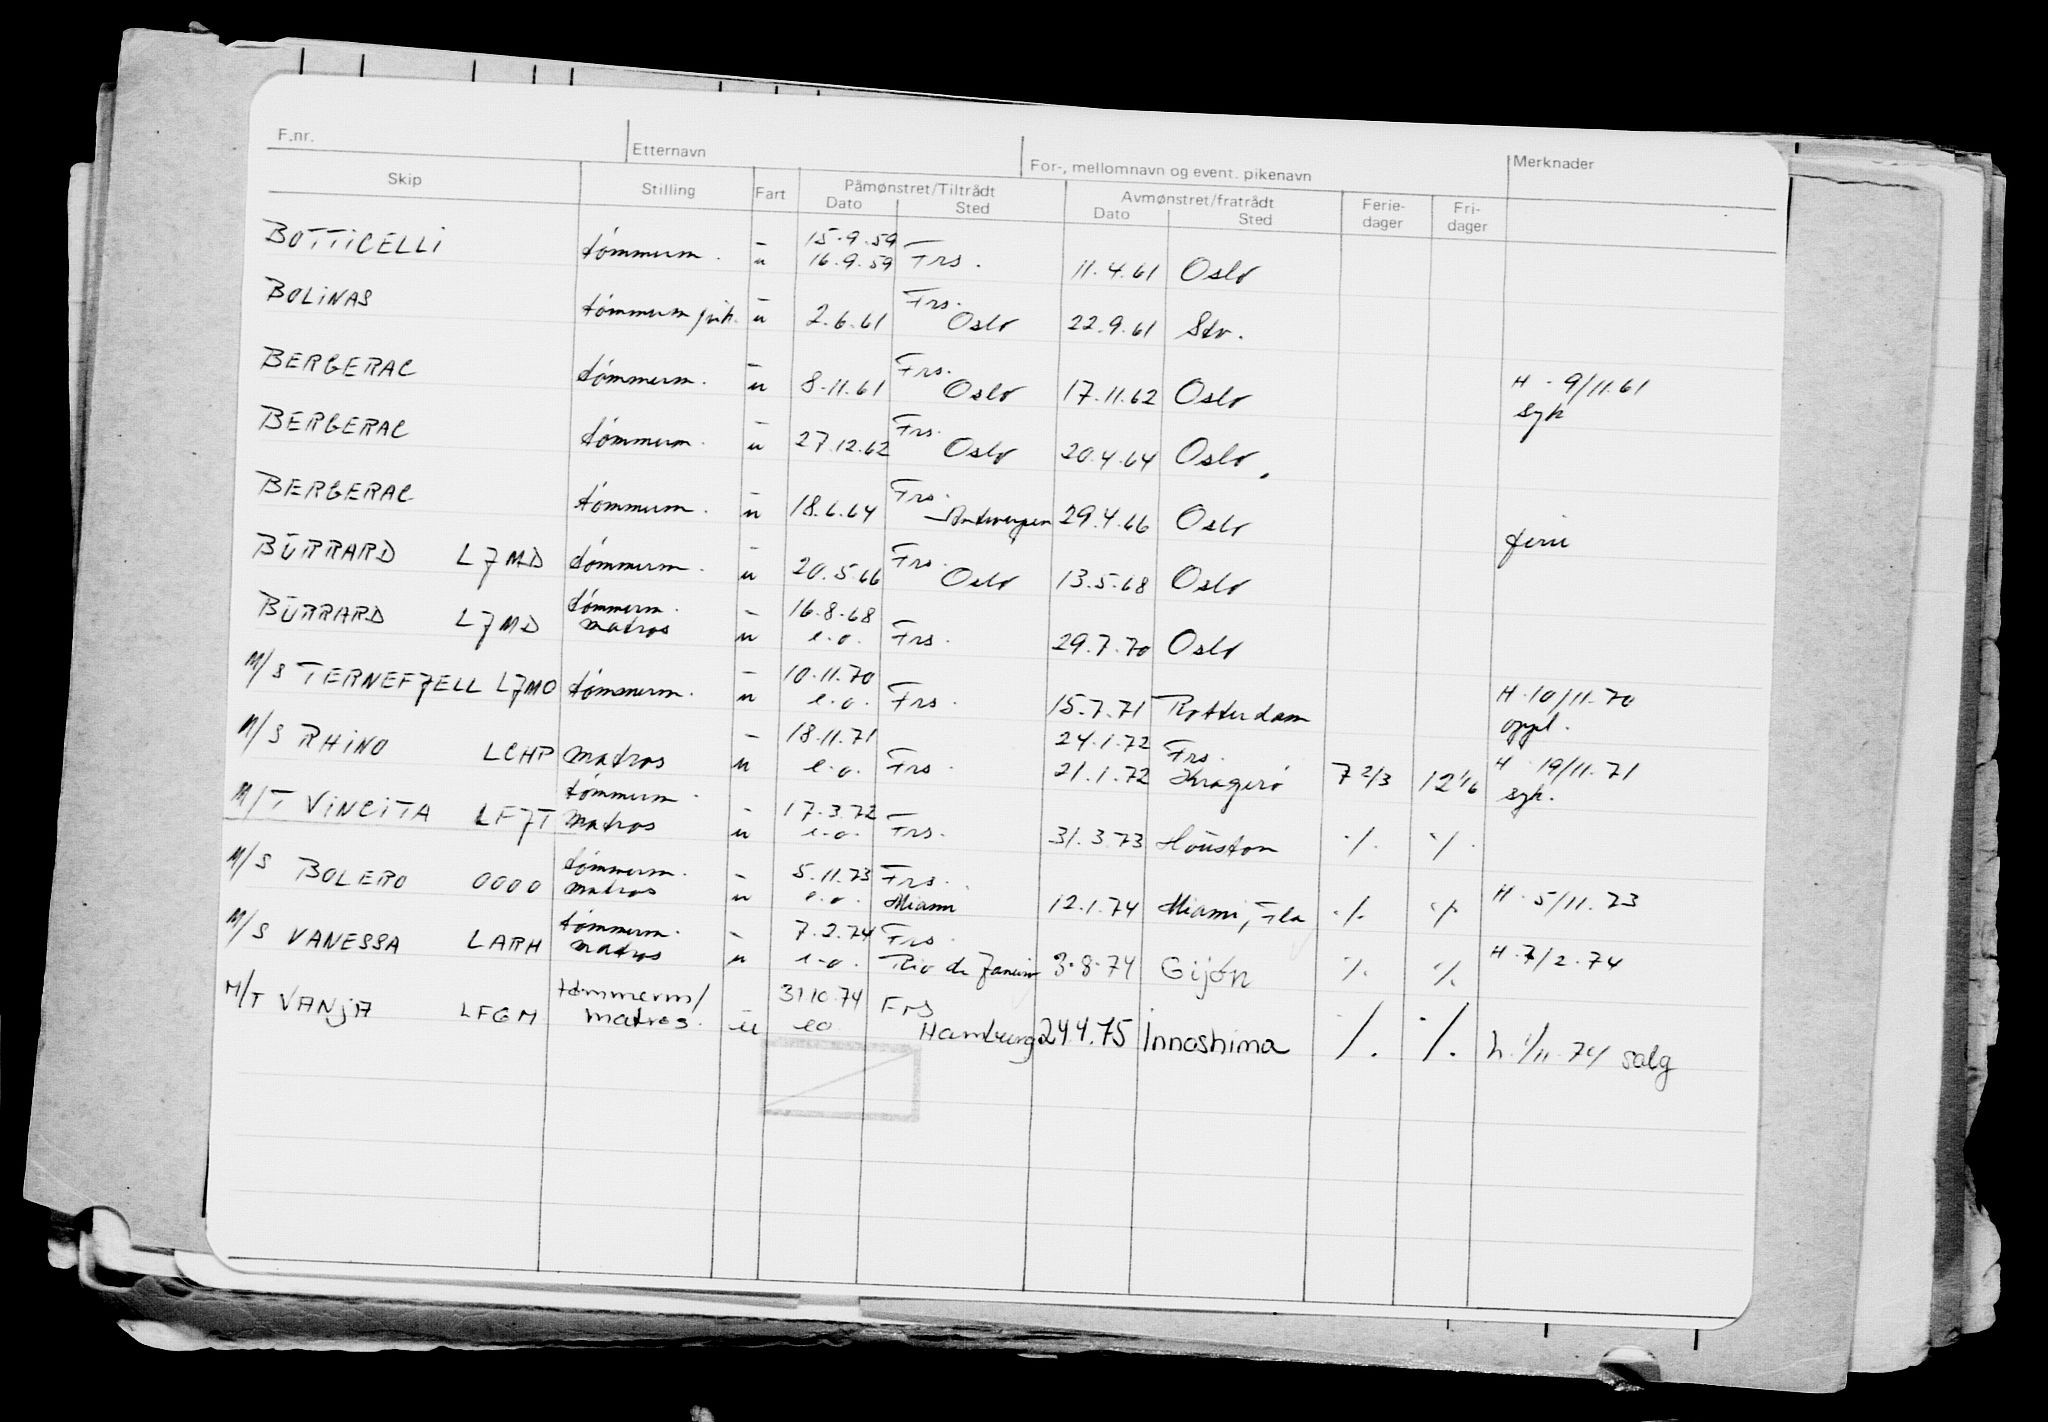 F.nr. Etternavn For-, mellomnavn og event. pikenavn Merknader
Skip Stilling Fart Påmønstret/Tiltrådt Avmønstret/fratrådt Ferie- Fri-
Dato Sted Dato Sted dager dager
BOTTICELLI tømmerm. – 15.9.59
u 16.9.59 Frs. 11.4.61 Oslo
BOLINAS – Frs.
tømmerm u 2.6.61 Oslo 22.9.61 Stv.
BERGERAC – Frs.
tømmerm. u 8.11.61 Oslo 17.11.62 Oslo H - 9/11.61
syk
BERGERAC – Frs.
tømmerm. u 27.12.62 Oslo 20.4.64 Oslo.
BERGERAC – Frs.
tømmerm. u 18.6.64 Antwerpen 29.4.66 Oslo ferie
BURRARD LJMD tømmerm. – Frs.
u 20.5.66 Oslo 13.5.68 Oslo
BURRARD LJMD tømmerm. – 16.8.68
matros u e.o. Frs. 29.7.70 Oslo
M/S TERNEFJELL LJMO tømmerm. – 10.11.70
u e.o. Frs. 15.7.71 Rotterdam H - 10/11.70
oppl.
M/S RHINO LCHP matros – 18.11.71 24.1.72 Frs.
u e.o. Frs. 21.1.72 Kragerø 7 2/3 12 1/6 H - 19/11.71
syk.
M/T VINCITA LFJT tømmerm. – 17.3.72
matros u e.o. Frs. 31.3.73 Houston ./. ./.
M/S BOLERO OOOO tømmerm. – 5.11.73 Frs.
matros u e.o. Miami 12.1.74 Miami, Fla ./. ./. H - 5/11.73
M/S VANESSA LARH tømmerm. – 7.2.74 Frs.
matros u e.o. Rio de Janeiro 3.8.74 Gijón ./. ./. H.7/2.74
M/T VANJA LFGM tømmerm/ – 31.10.74 Frs
matros. u eo Hamburg 24.4.75 Innoshima ./. ./. h.1/11.74 salg